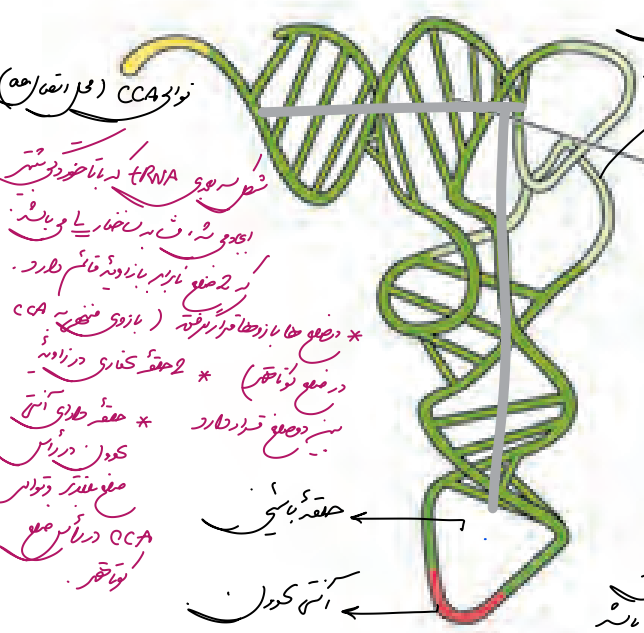 توالی CCA (محل اتصال aa)
شکل سه بعدی tRNA که با تا خوردگی بیشتر
ایجاد می شه، شبیه ساختار L می باشد
که 2 ضلع نابرابر با زاویۀ قائم دارد.
* در ضلع ها بازوها قرار گرفته (بازوی منتهی به CCA
در ضلع کوتاهتر) * 2 حلقۀ کناری در زاویۀ
بین دو ضلع قرار دارد * حلقه دارای آنتی
کدون در رأس
ضلع بلندتر و توالی
CCA در رأس ضلع
کوتاهتر.
حلقۀ
آنتی کدون